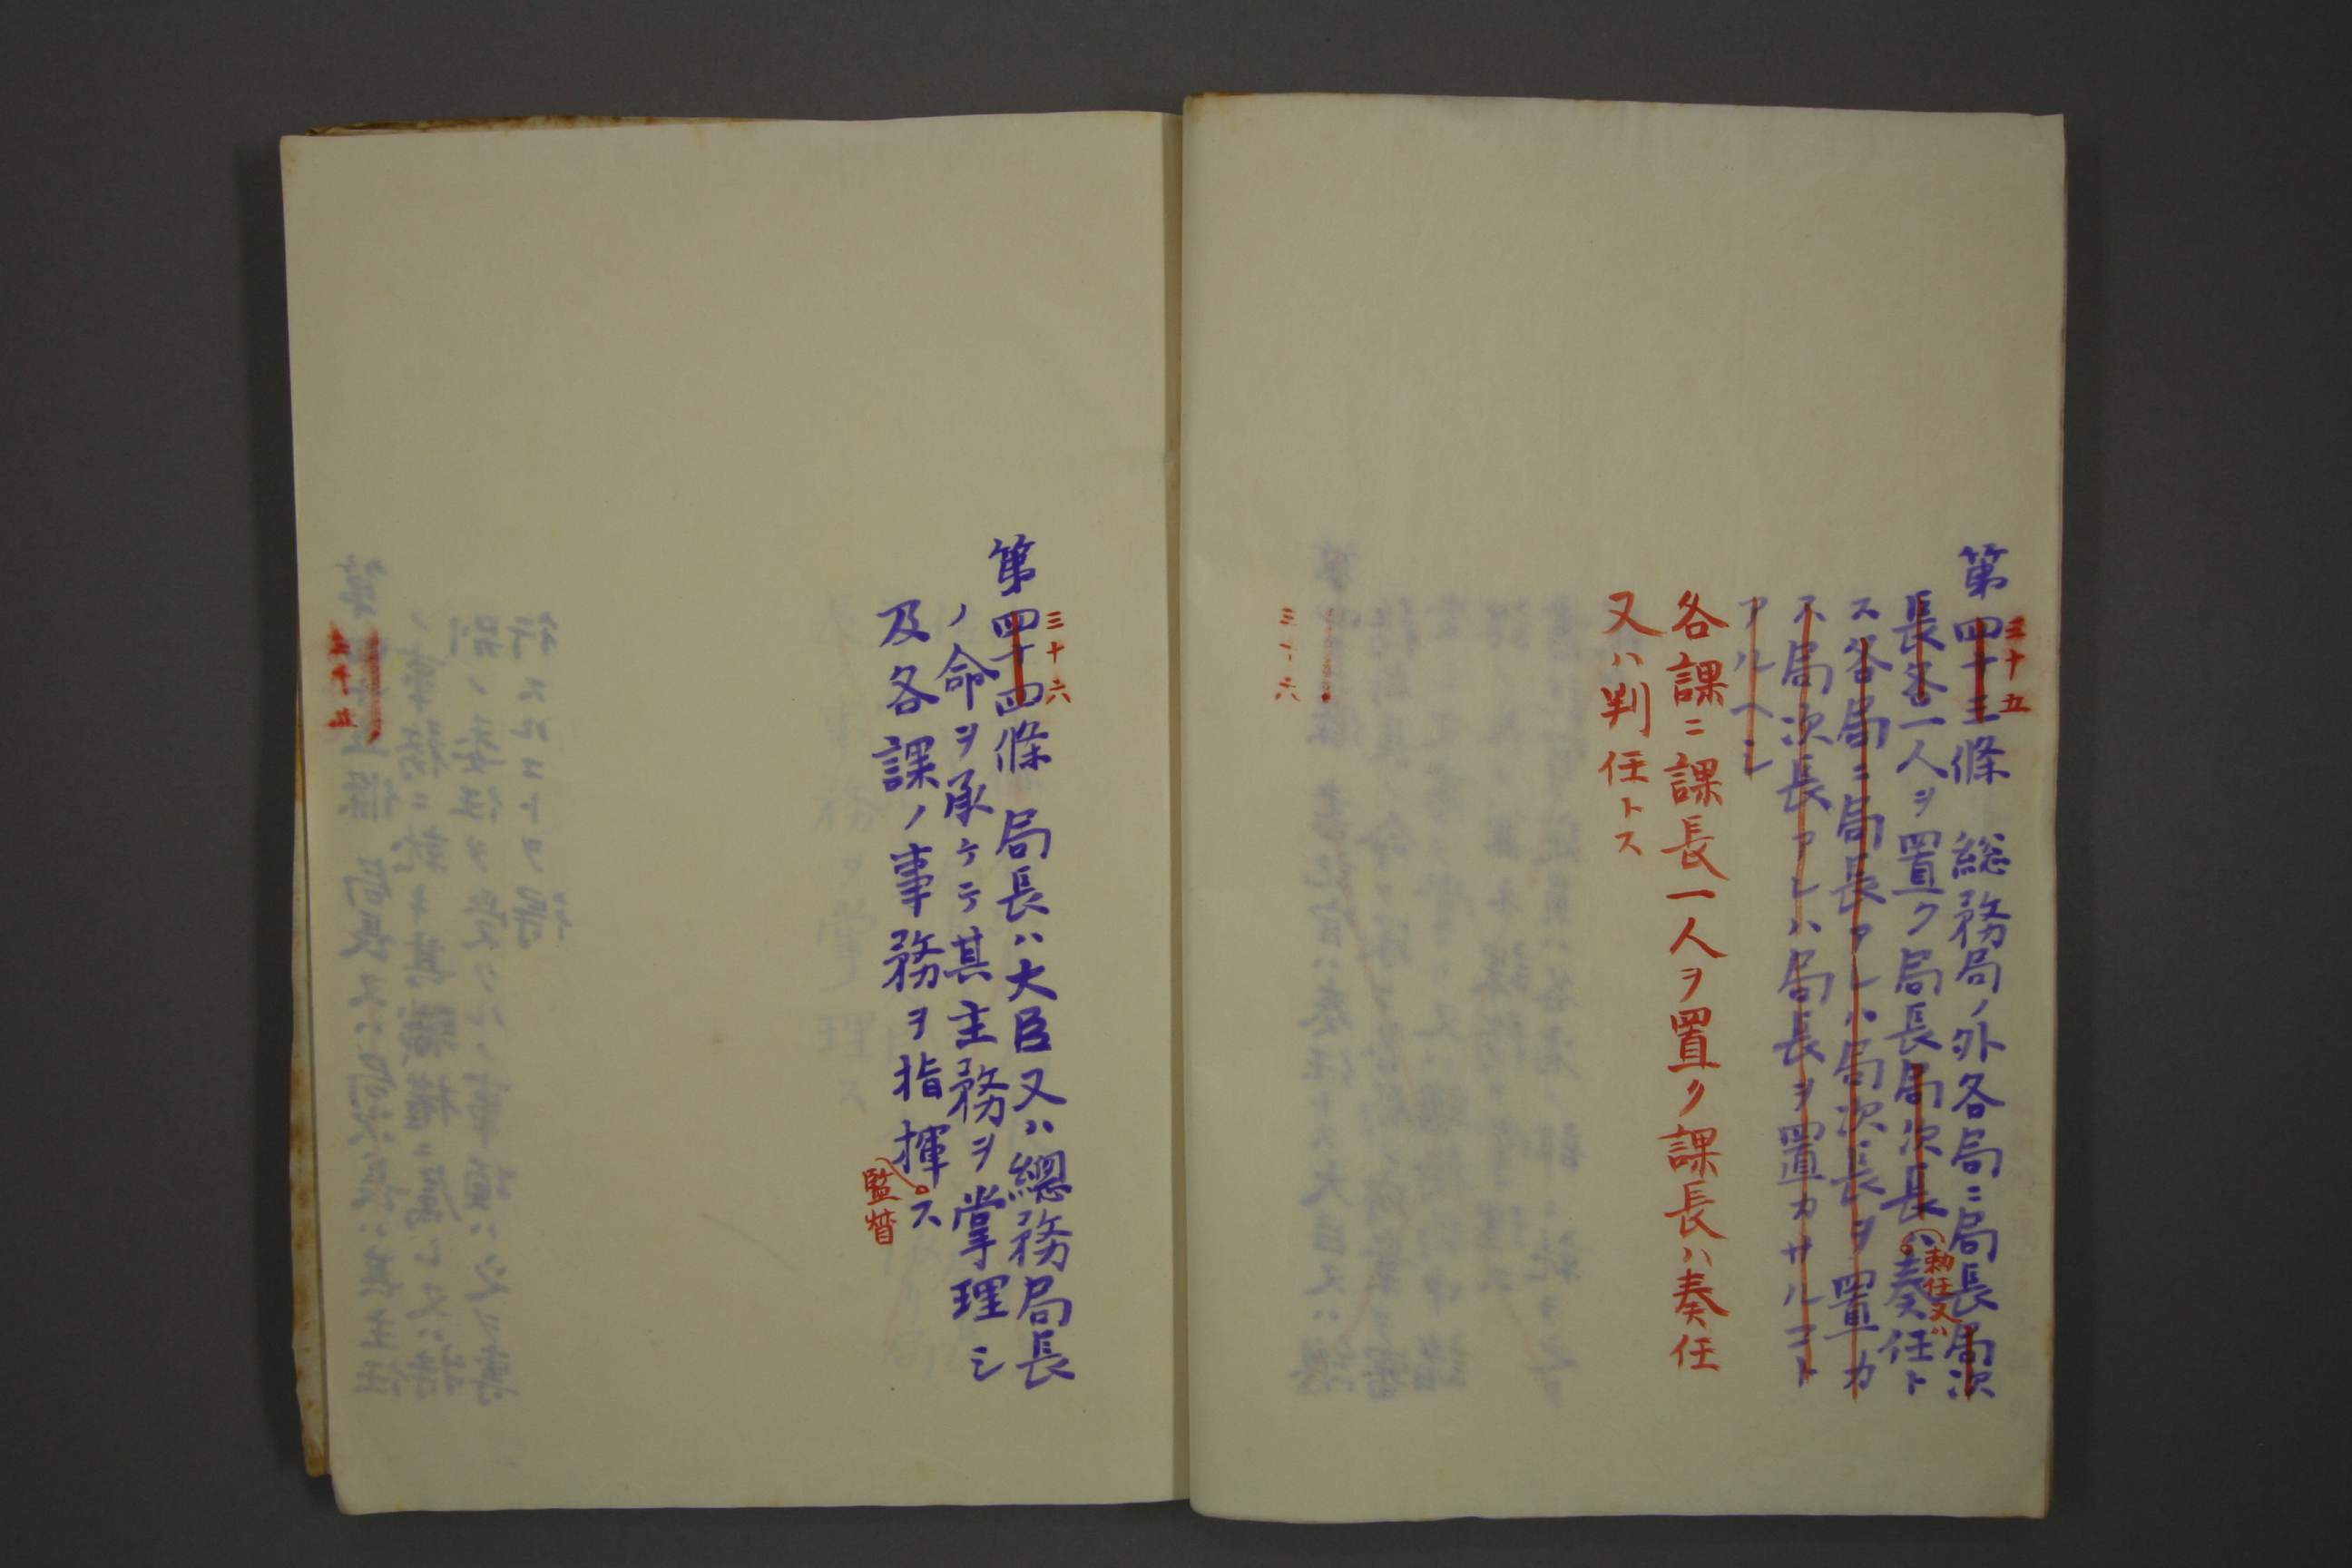 三十五
第四十三條 総務局ノ外各局ニ局長局次
長各一人ヲ置ク局長局次長ハ奏任ト
勅任又ハ
ス各局ニ局長アレハ局次長ヲ置カ
ス局次長アレハ局長ヲ置カサルコト
アルヘシ
各課ニ課長一人ヲ置ク課長ハ奏任
又ハ判任トス
三十六
第四十四條 局長ハ大臣又ハ總務局長
ノ命ヲ承ケテ其主務ヲ掌理シ
及各課ノ事務ヲ指揮ス
監督